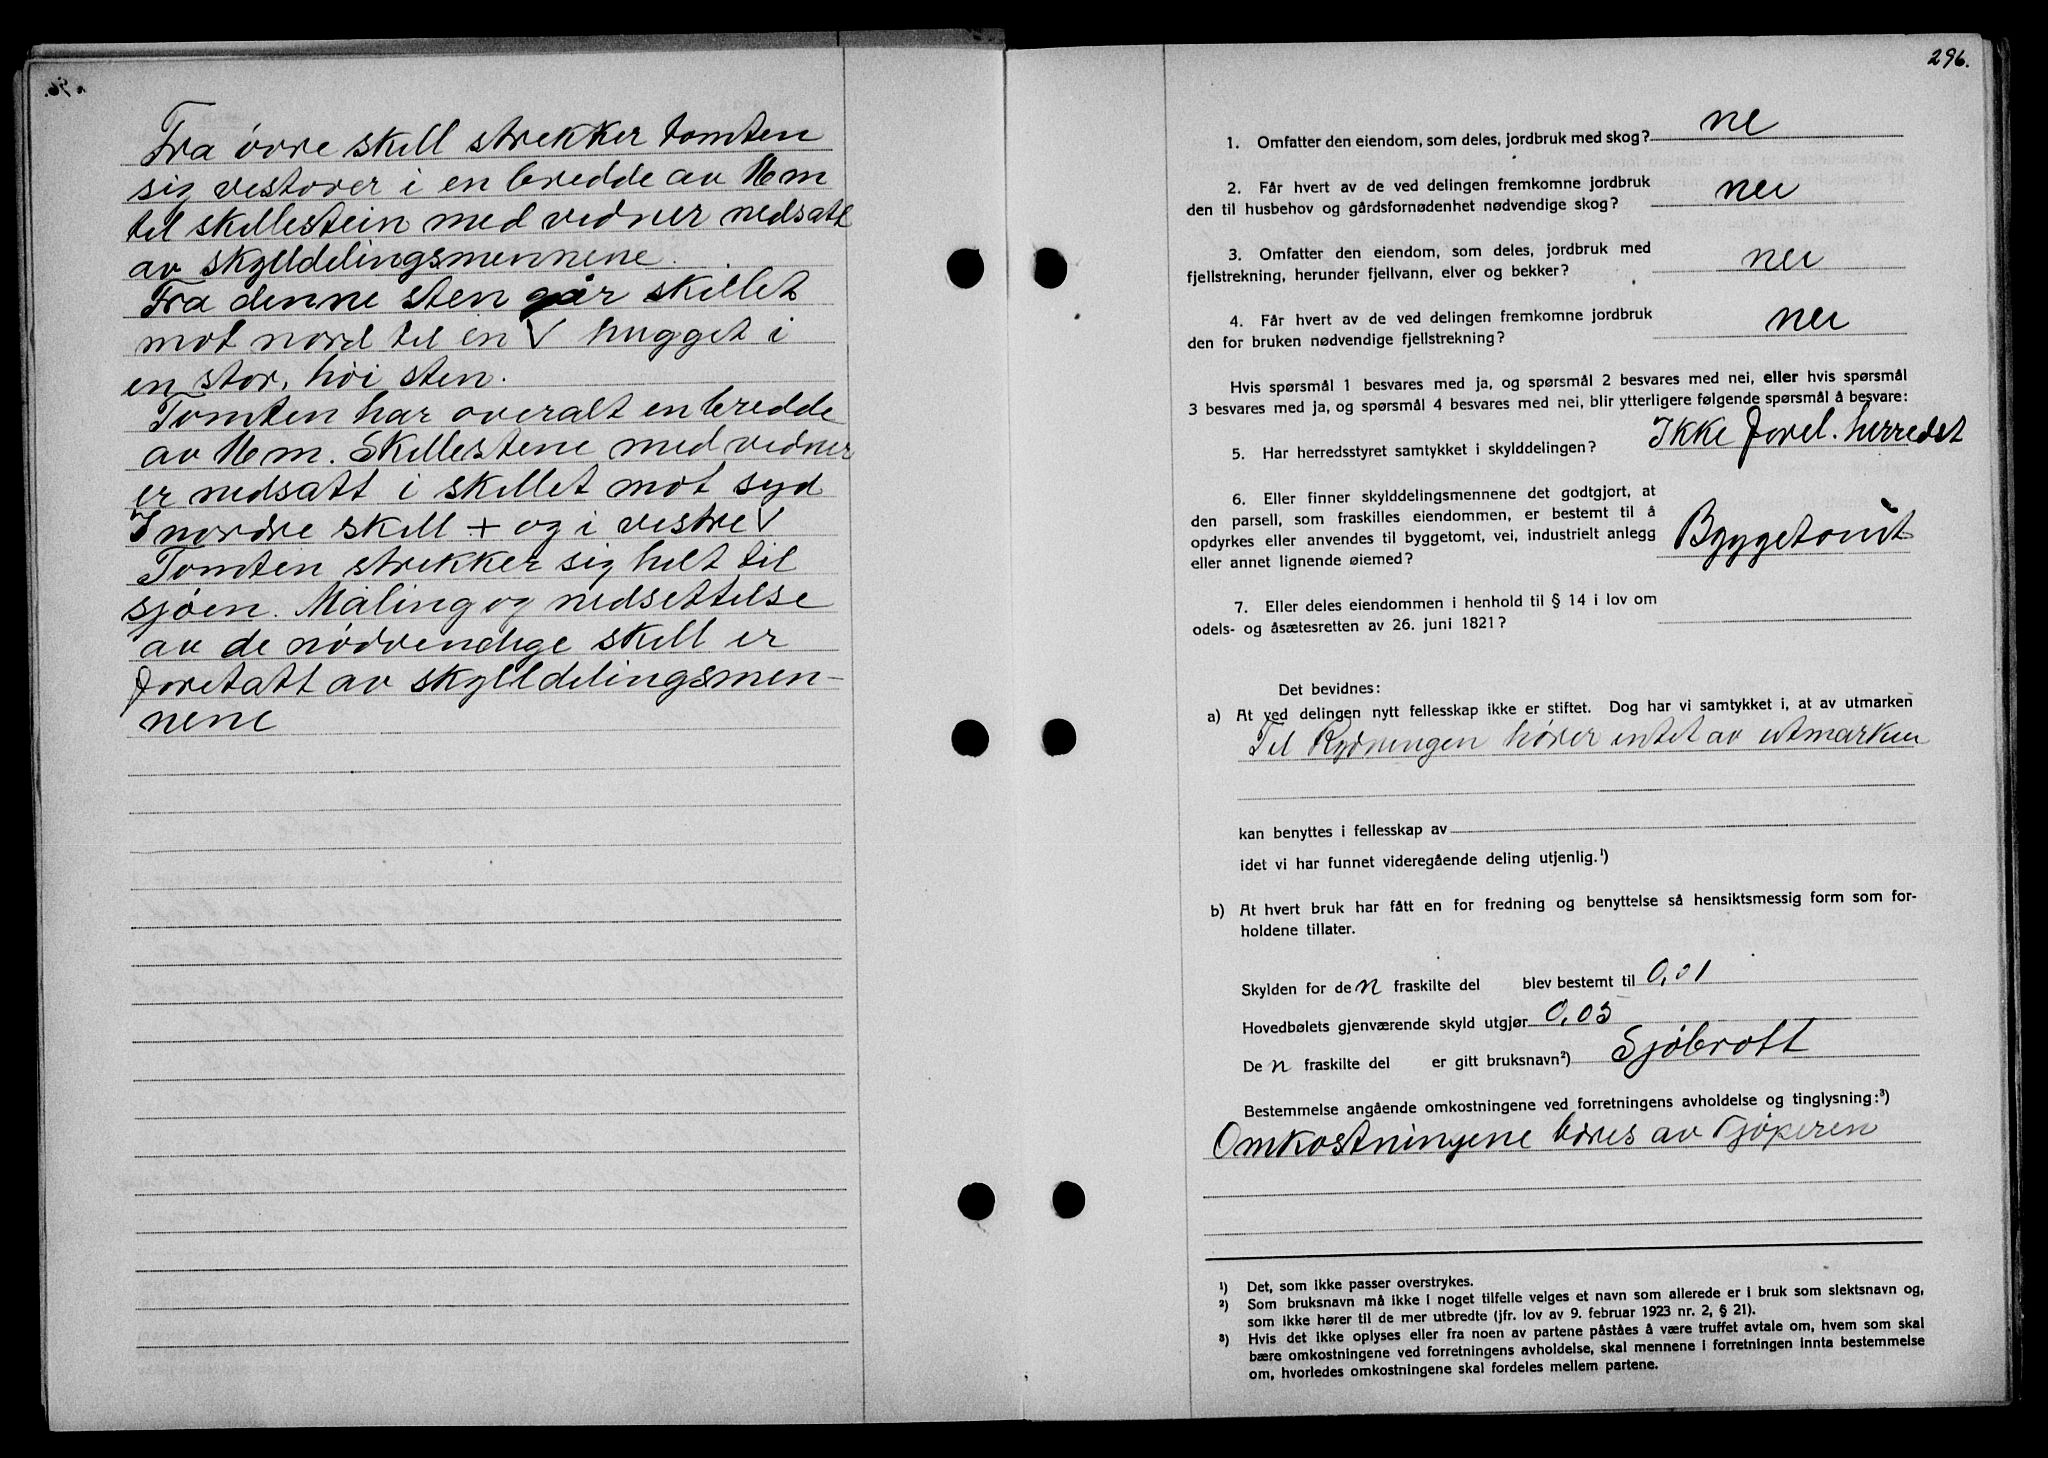 Fra övre skill strekker tomten
sig vestover i en bredde av 16 m
til skillestein med vidner nedsatt
av skylldelingsmennene.
Fra denne sten går skillet
mot nord til en V hugget i
en stor, höi sten.
Tomten har overalt en bredde
av 16 m. Skillestene med vidner
er nedsatt i skillet mot syd
I nordre skill + og i vestre V
Tomten strekker sig helt til
sjöen. Måling og nedsettelse
av de nödvendige skill er
foretatt av skylldelingsmen-
nene
296.
1. Omfatter den eiendom, som deles, jordbruk med skog? ne
2. Får hvert av de ved delingen fremkomne jordbruk
den til husbehov og gårdsfornødenhet nødvendige skog? nei
3. Omfatter den eiendom, som deles, jordbruk med
fjellstrekning, herunder fjellvann, elver og bekker? nei
4. Får hvert av de ved delingen fremkomne jordbruk
den for bruken nødvendige fjellstrekning? nei
Hvis spørsmål 1 besvares med ja, og spørsmål 2 besvares med nei, eller hvis spørsmål
3 besvares med ja, og spørsmål 4 besvares med nei, blir ytterligere følgende spørsmål å besvare:
5. Har herredsstyret samtykket i skylddelingen? Ikke forel. herredet
6. Eller finner skylddelingsmennene det godtgjort, at
den parsell, som fraskilles eiendommen, er bestemt til å
opdyrkes eller anvendes til byggetomt, vei, industrielt anlegg
eller annet lignende øiemed? Byggetomt
7. Eller deles eiendommen i henhold til § 14 i lov om
odels- og åsætesretten av 26. juni 1821?
Det bevidnes:
a) At ved delingen nytt fellesskap ikke er stiftet. Dog har vi samtykket i, at av utmarken
Til Rydningen hører intet av utmarken
kan benyttes i fellesskap av
idet vi har funnet videregående deling utjenlig.¹)
b) At hvert bruk har fått en for fredning og benyttelse så hensiktsmessig form som for-
holdene tillater.
Skylden for de n fraskilte del blev bestemt til 0,01
Hovedbølets gjenværende skyld utgjør 0,05
De n fraskilte del er gitt bruksnavn²) Sjöbrott
Bestemmelse angående omkostningene ved forretningens avholdelse og tinglysning:³)
Omkostningene bæres av kjöperen
¹) Det, som ikke passer overstrykes.
²) Som bruksnavn må ikke i noget tilfelle velges et navn som allerede er i bruk som slektsnavn og,
som ikke hører til de mer utbredte (jfr. lov av 9. februar 1923 nr. 2, § 21).
³) Hvis det ikke oplyses eller fra noen av partene påståes å være truffet avtale om, hvem som skal
bære omkostningene ved forretningens avholdelse, skal mennene i forretningen innta bestemmelse
om, hvorledes omkostningene skal fordeles mellem partene.